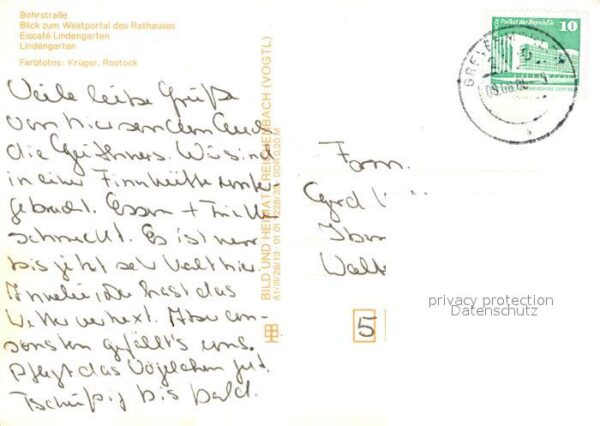 Bohrstraße
Blick zum Westportal des Rathauses
Eiscafé Lindengarten
Lindengarten
Farbfotos: Krüger, Rostock
Viele liebe Grüße
von hier senden Euch
die Günthners. Wir sind
in einer Finnhütte unter-
gebracht. Essen + Trinken
schmeckt. Es ist nur
bis jetzt sehr kalt hier
du hast das
Wetter verhext. Aber an-
sonsten gefällt's uns.
Pflegt das Vögelchen gut.
bis bald.
BILD UND HEIMAT REICHENBACH (VOGTL)
A1/III/26/13 01 01 0228/33 DDR 0,20 M
Palast der Republik
10
Fam.
Gerd
5
privacy protection
Datenschutz